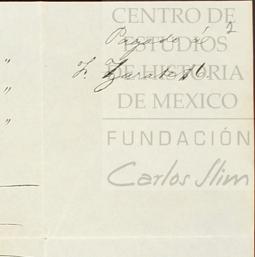 CENTRO DE
2
ESTUDIOS
Pagado á
DE HISTORIA
F. Zarate
DE MEXICO
FUNDACIÓN
Carlos Slim
"
"
"